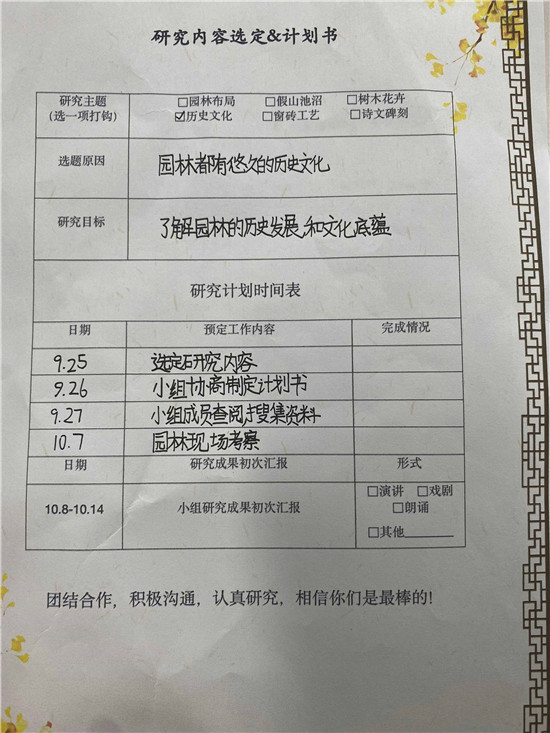 研究内容选定&计划书
研究主题 □园林布局 □假山池沼 □树木花卉
(选一项打钩) ☑历史文化 □窗砖工艺 □诗文碑刻
选题原因 园林都有悠久的历史文化
研究目标 了解园林的历史发展、和文化底蕴
研究计划时间表
日期 预定工作内容 完成情况
9.25 选定研究内容
9.26 小组协商制定计划书
9.27 小组成员查阅搜集资料
10.7 园林现场考察
日期 研究成果初次汇报 形式
10.8-10.14 小组研究成果初次汇报 □演讲 □戏剧
□朗诵
□其他
团结合作，积极沟通，认真研究，相信你们是最棒的!